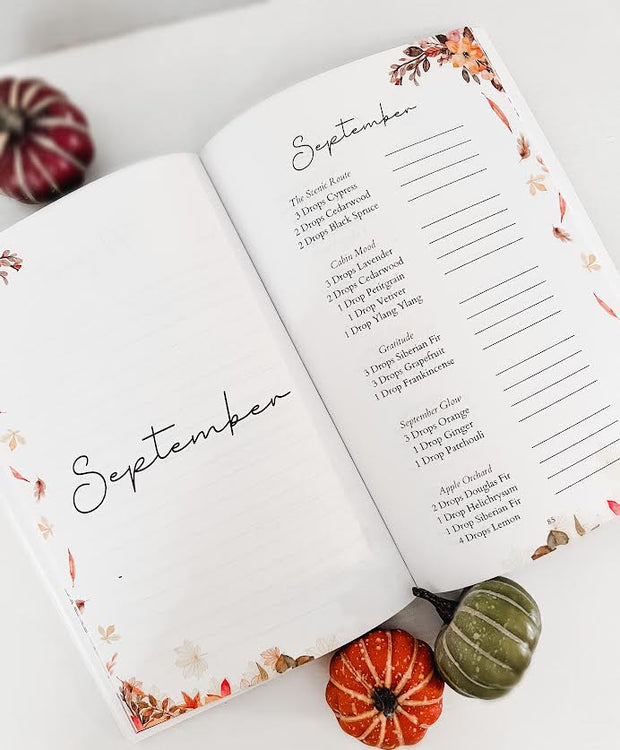 September
September
The Scenic Route
3 Drops Cypress
2 Drops Cedarwood
2 Drops Black Spruce
Cabin Mood
3 Drops Lavender
2 Drops Cedarwood
1 Drop Petitgrain
1 Drop Vetiver
1 Drop Ylang Ylang
Gratitude
3 Drops Siberian Fir
3 Drops Grapefruit
1 Drop Frankincense
September Glow
3 Drops Orange
1 Drop Ginger
1 Drop Patchouli
Apple Orchard
2 Drops Douglas Fir
1 Drop Helichrysum
1 Drop Siberian Fir
4 Drops Lemon
85